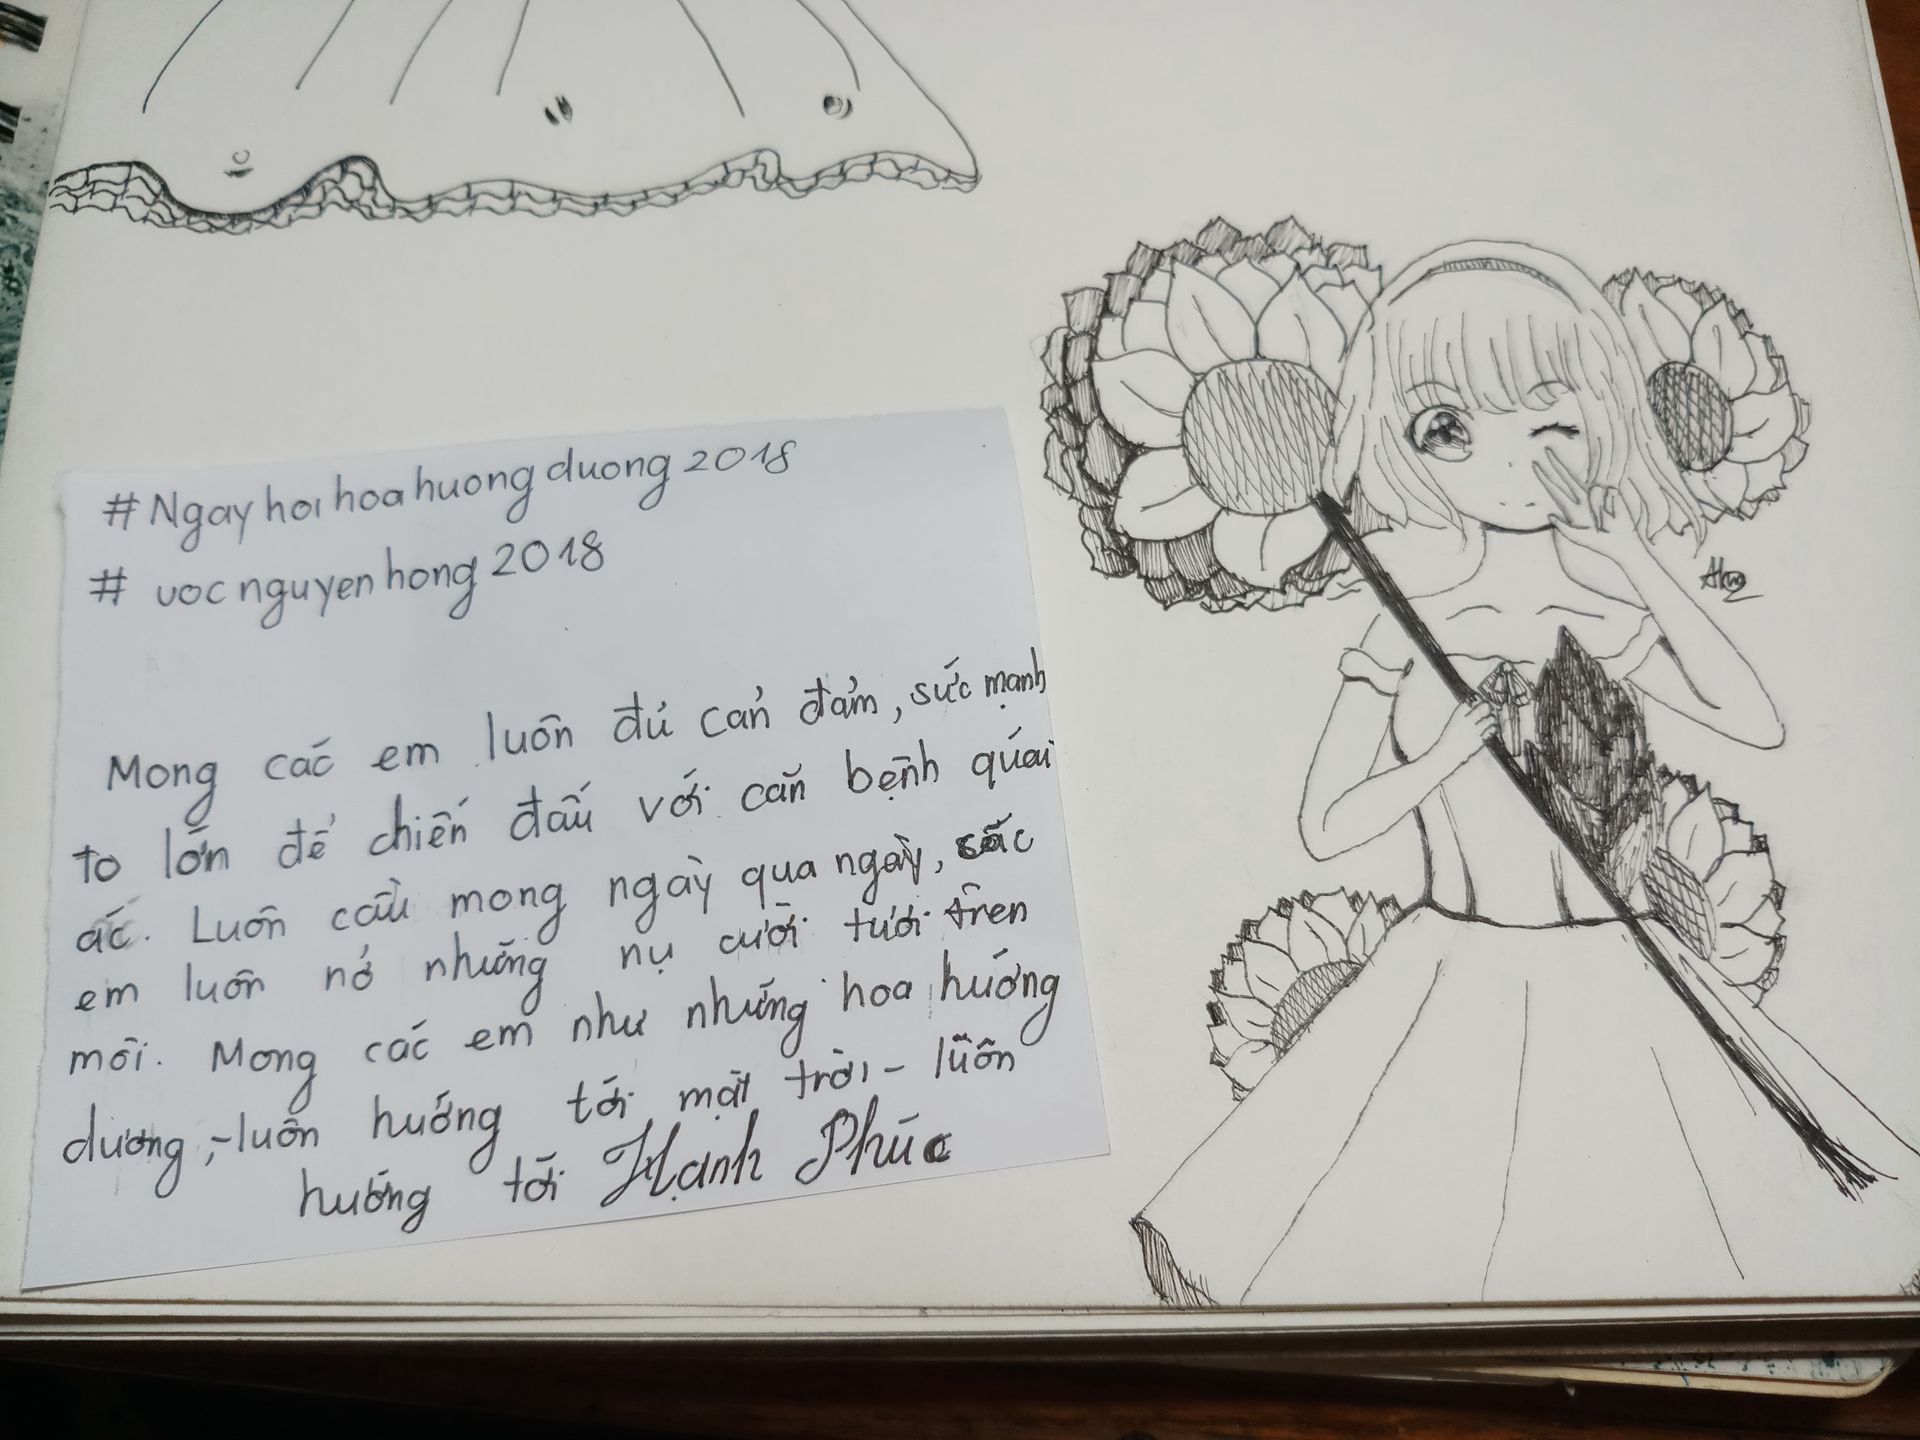 #Ngay hoi hoa huong duong 2018
# uoc nguyen hong 2018
Mong các em luôn đủ can đảm, sức mạnh
to lớn để chiến đấu với căn bệnh quái
ác. Luôn cầu mong ngày qua ngày, các
em luôn nở những nụ cười tươi trên
môi. Mong các em như những hoa hướng
dương, -luôn hướng tới mặt trời - luôn
hướng tới Hạnh Phúc